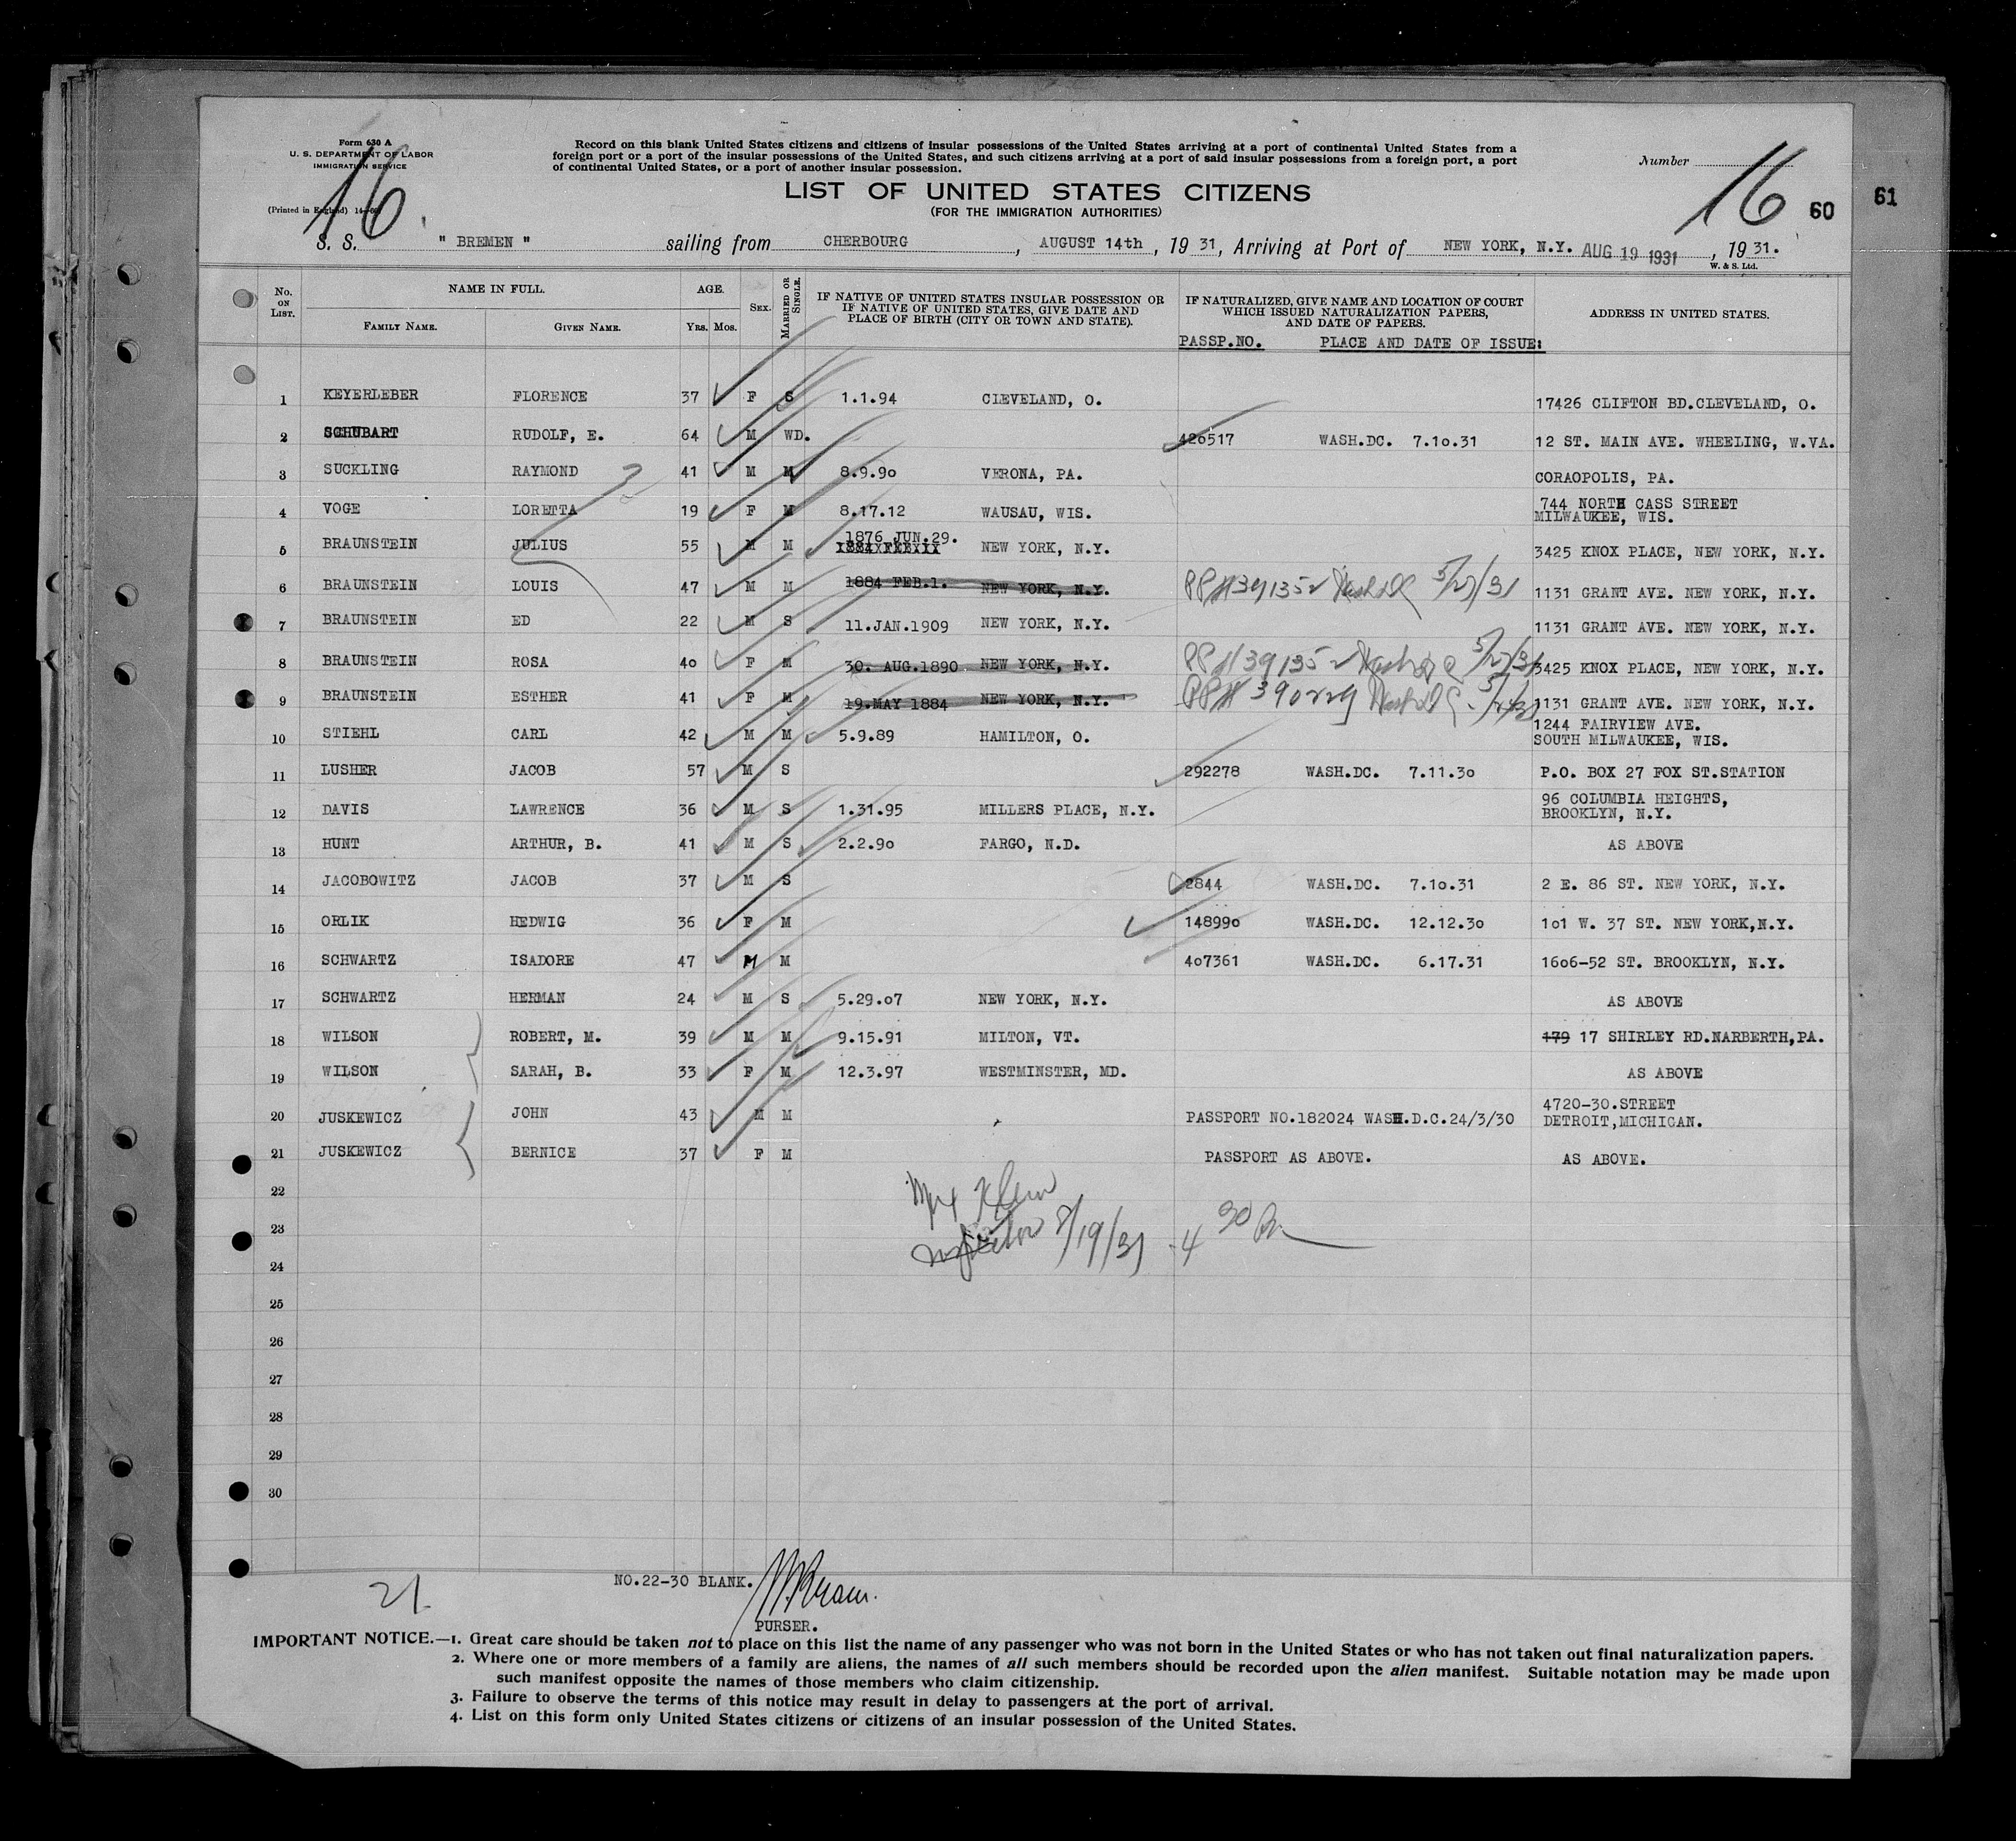 Form 630 A
U. S. DEPARTMENT OF LABOR
IMMIGRATION SERVICE
(Printed in England)
16
Record on this blank United States citizens and citizens of insular possessions of the United States arriving at a port of continental United States from a
foreign port or a port of the insular possessions of the United States, and such citizens arriving at a port of said insular possessions from a foreign port, a port
of continental United States, or a port of another insular possession.
Number 16
60 61
LIST OF UNITED STATES CITIZENS
(FOR THE IMMIGRATION AUTHORITIES)
S. S. " BREMEN " sailing from CHERBOURG, AUGUST 14th, 19 31, Arriving at Port of NEW YORK, N.Y. AUG 19 1931, 19 31.
W. & S. Ltd.
No. ON LIST. NAME IN FULL. FAMILY NAME. GIVEN NAME. AGE. Yrs. Mos. SEX. MARRIED OR SINGLE. IF NATIVE OF UNITED STATES INSULAR POSSESSION OR IF NATIVE OF UNITED STATES, GIVE DATE AND PLACE OF BIRTH (CITY OR TOWN AND STATE). IF NATURALIZED, GIVE NAME AND LOCATION OF COURT WHICH ISSUED NATURALIZATION PAPERS, AND DATE OF PAPERS. ADDRESS IN UNITED STATES.
PASSP.NO. PLACE AND DATE OF ISSUE:
1 KEYERLEBER FLORENCE 37 F S 1.1.94 CLEVELAND, O. 17426 CLIFTON BD.CLEVELAND, O.
2 SCHUBART RUDOLF, E. 64 M WD. 420517 WASH.DC. 7.10.31 12 ST. MAIN AVE. WHEELING, W.VA.
3 SUCKLING RAYMOND 41 M M 8.9.90 VERONA, PA. CORAOPOLIS, PA.
4 VOGE LORETTA 19 F M 8.17.12 WAUSAU, WIS. 744 NORTH CASS STREET
MILWAUKEE, WIS.
5 BRAUNSTEIN JULIUS 55 M M 1876 JUN.29. NEW YORK, N.Y. 3425 KNOX PLACE, NEW YORK, N.Y.
6 BRAUNSTEIN LOUIS 47 M M 1884 FEB.1. NEW YORK, N.Y. 1131 GRANT AVE. NEW YORK, N.Y.
7 BRAUNSTEIN ED 22 M S 11.JAN.1909 NEW YORK, N.Y. 1131 GRANT AVE. NEW YORK, N.Y.
8 BRAUNSTEIN ROSA 40 F M 30. AUG.1890 NEW YORK, N.Y. 3425 KNOX PLACE, NEW YORK, N.Y.
9 BRAUNSTEIN ESTHER 41 F M 19.MAY 1884 NEW YORK, N.Y. 1131 GRANT AVE. NEW YORK, N.Y.
10 STIEHL CARL 42 M M 5.9.89 HAMILTON, O. 1244 FAIRVIEW AVE.
SOUTH MILWAUKEE, WIS.
11 LUSHER JACOB 57 M S 292278 WASH.DC. 7.11.30 P.O. BOX 27 FOX ST.STATION
12 DAVIS LAWRENCE 36 M S 1.31.95 MILLERS PLACE, N.Y. 96 COLUMBIA HEIGHTS,
BROOKLYN, N.Y.
13 HUNT ARTHUR, B. 41 M S 2.2.90 FARGO, N.D. AS ABOVE
14 JACOBOWITZ JACOB 37 M S 2844 WASH.DC. 7.10.31 2 E. 86 ST. NEW YORK, N.Y.
15 ORLIK HEDWIG 36 F M 148990 WASH.DC. 12.12.30 101 W. 37 ST. NEW YORK,N.Y.
16 SCHWARTZ ISADORE 47 M M 407361 WASH.DC. 6.17.31 1606-52 ST. BROOKLYN, N.Y.
17 SCHWARTZ HERMAN 24 M S 5.29.07 NEW YORK, N.Y. AS ABOVE
18 WILSON ROBERT, M. 39 M M 9.15.91 MILTON, VT. 179 17 SHIRLEY RD.NARBERTH,PA.
19 WILSON SARAH, B. 33 F M 12.3.97 WESTMINSTER, MD. AS ABOVE
20 JUSKEWICZ JOHN 43 M M PASSPORT NO.182024 WASH.D.C.24/3/30 4720-30.STREET
DETROIT,MICHICAN.
21 JUSKEWICZ BERNICE 37 F M PASSPORT AS ABOVE. AS ABOVE.
22
23 Inspector 8/19/31 4 30
24
25
26
27
28
29
30
21
NO.22-30 BLANK.
PURSER.
IMPORTANT NOTICE.—1. Great care should be taken not to place on this list the name of any passenger who was not born in the United States or who has not taken out final naturalization papers.
2. Where one or more members of a family are aliens, the names of all such members should be recorded upon the alien manifest. Suitable notation may be made upon
such manifest opposite the names of those members who claim citizenship.
3. Failure to observe the terms of this notice may result in delay to passengers at the port of arrival.
4. List on this form only United States citizens or citizens of an insular possession of the United States.